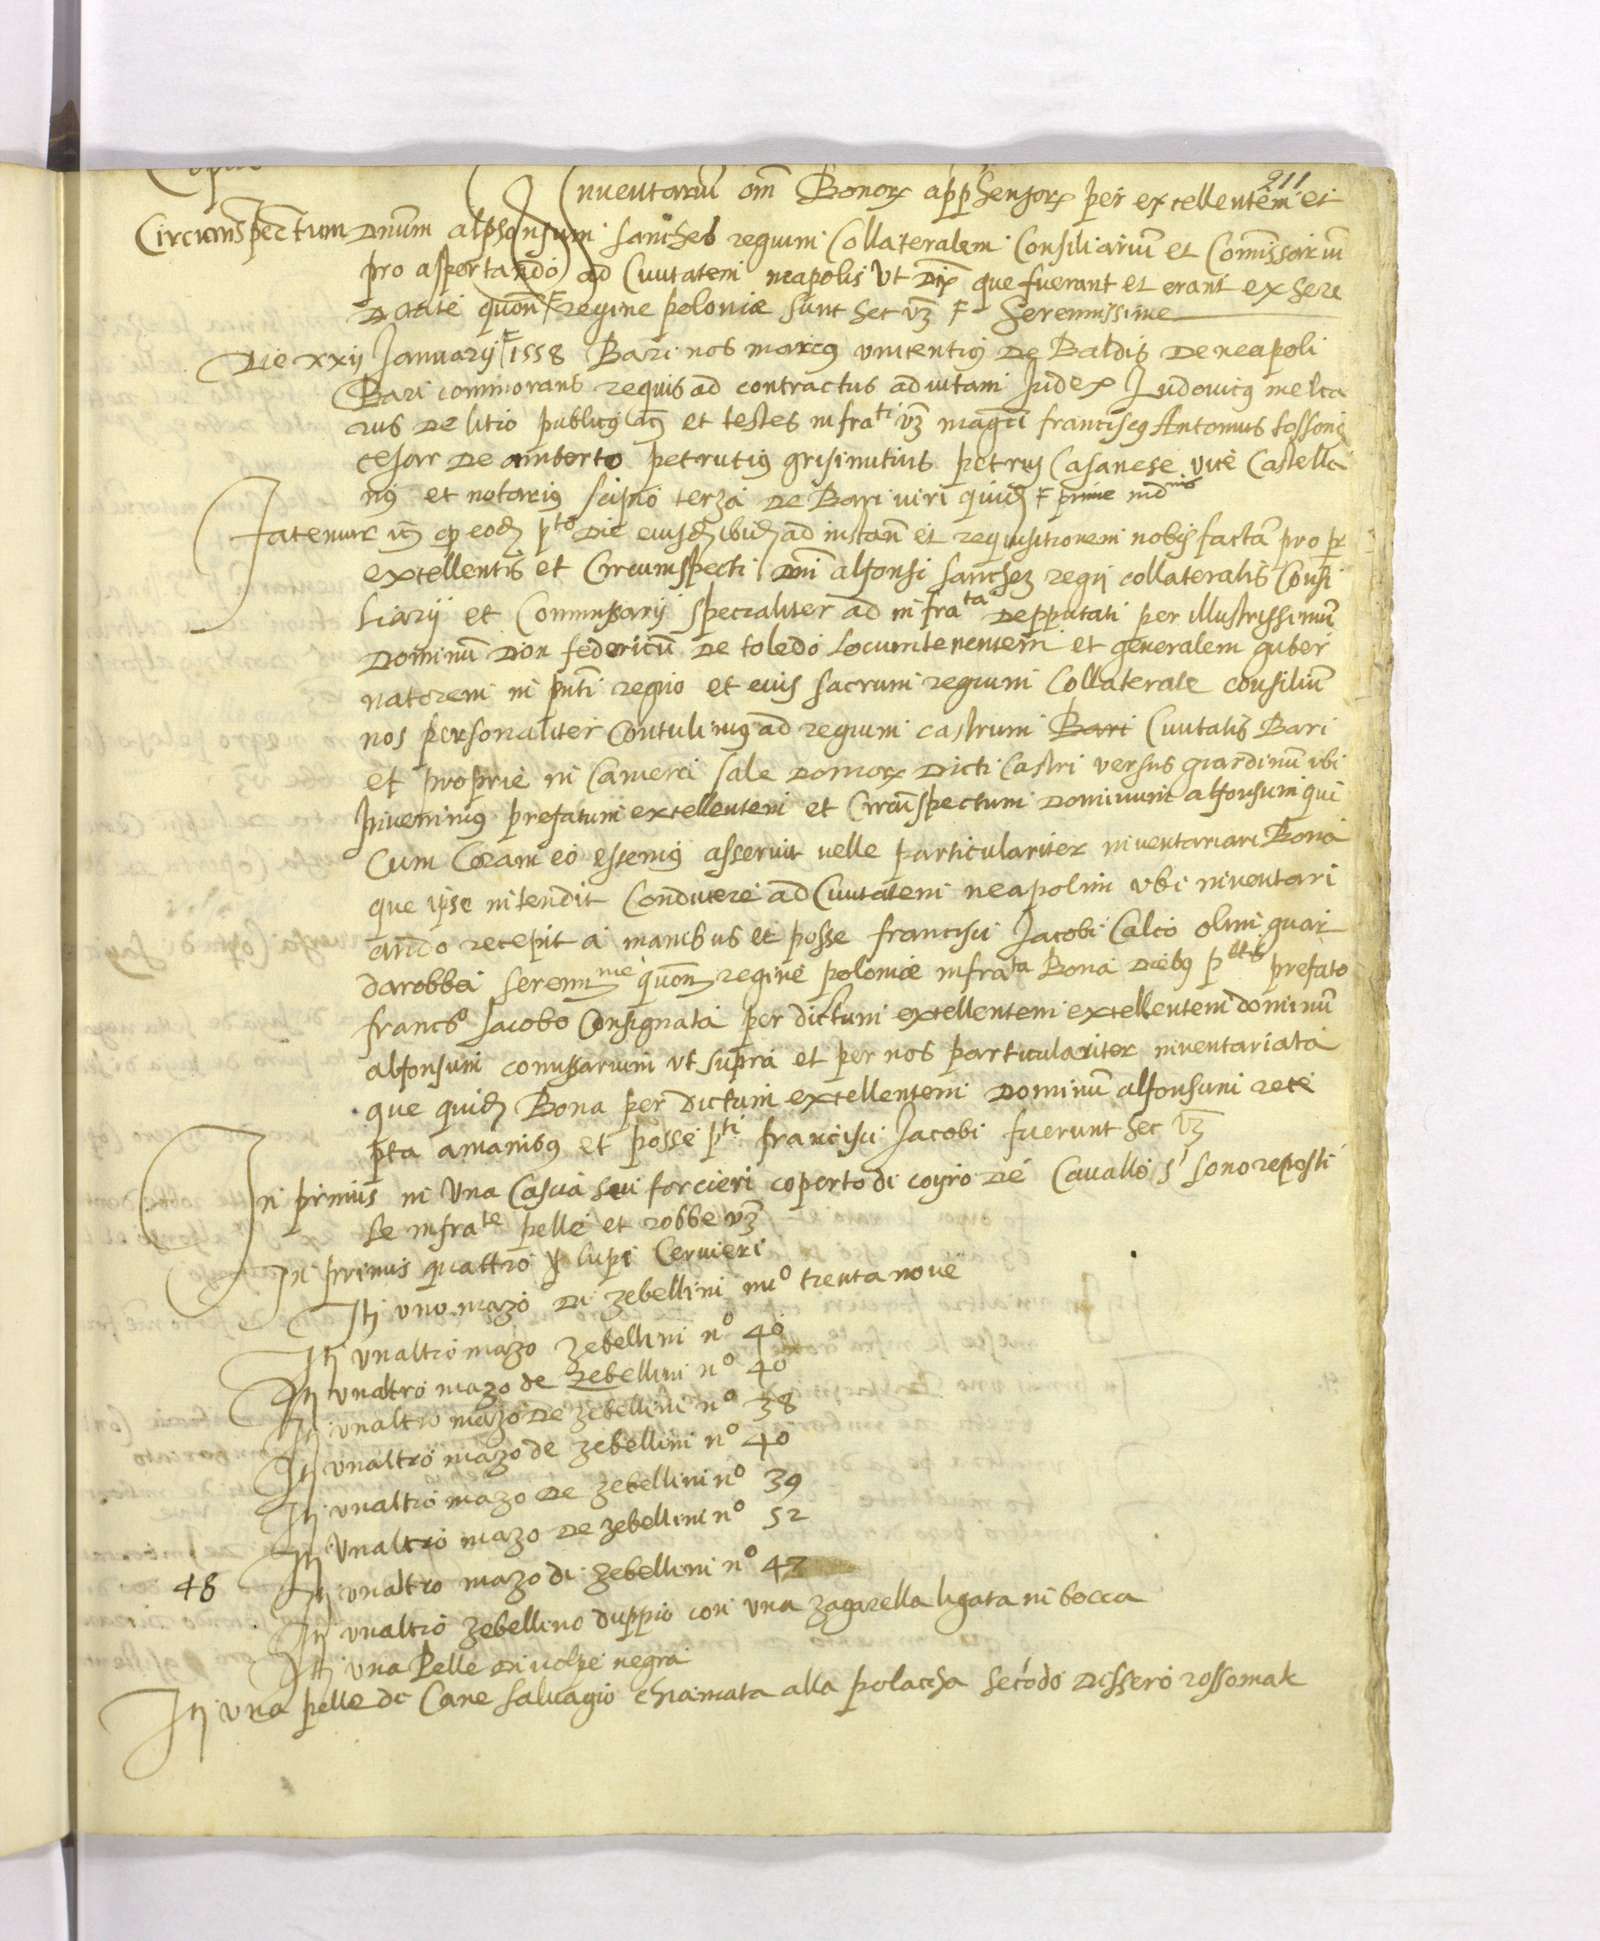 Copia
211
Inventariũ oiũ Bonorꝝ apphensorꝝ per excellentem et
Circumspectum dnum alphonsum sanches regium Collateralem Consiliariũ et Comissariũ
pro asportando ad Civitatem neapolis ut dr que fuerunt et erant ex here
ditate quon regine poloniæ sunt hec vz Serenissime
Die xxij Januarij 1558 Bari nos marcus vincentius de Baldis de neapoli
Bari commorans regius ad contractus ad vitam Judex Ludovicus melca
rus de litio publicus et testes infrati vz magci franciscus Antonius fossonus
cesar de amberto petrutius grisinutius petrus Casanese vite Castella
nus et notarius scipio terza de Bari viri quid
fatemur qp eod pto die eiusd ibid ad instan et requisitionem nobis factã pro pr
excellentis et Circumspecti dni alfonsi sanchez regij collateralis Consi
liarij et Commissarij specialiter ad infrata depputati per illustrissimũ
dominũ don federicũ de toledo locumtenentem et generalem guber
natorem in pnti regno et eius sacrum regium Collaterale consiliũ
nos personaliter Contulimus ad regium castrum Bari Civitatis Bari
et proprie in Camera sale domorꝝ dicti Castri versus giardinũ ubi
Invenimus prefatum excellentem et Circũspectum dominum alfonsum qui
Cum Coram eo essemus asseruit velle particulariter inventariari Bona
que ipse intendit Conducere ad Civitatem neapolim ubi inventari
ando recepit a manibus et posse francisci Jacobi Calco olim guar
darobba serenme quon regine poloniæ infrata Bona diebus pttis prefato
francso Jacobo Consignata per dictum excellentem excellentem dominũ
alfonsum comissarium ut supra et per nos particulariter inventariata
que quid Bona per dictum excellentem Dominũ alfonsum rece
pta amanibus et posse pti francisci Jacobi fuerunt hec vz
In primis in Una Cascia seu forcieri coperto di coyro de Cavallo si sono reposti
le infrate pelle et robbe vz
In primis quattro lupi Cervieri
Itj uno mazo di zebellini nuo trenta nove
Itj unaltro mazo zebellini no 40
Itj unaltro mazo de zebellini no 40
Itj unaltro mazo de zebellini no 38
Itj unaltro mazo de zebellini no 40
Itj unaltro mazo de zebellini no 39
Itj Unaltro mazo de zebellini no 52
48 Itj unaltro mazo di zebellini no 47
Itj unaltro zebellino duppio con una zagarella ligata in bocca
Itj una Pelle di volpe negra
Itj una pelle de Cane salvagio chiamata alla polacha secõdo dissero rossomak